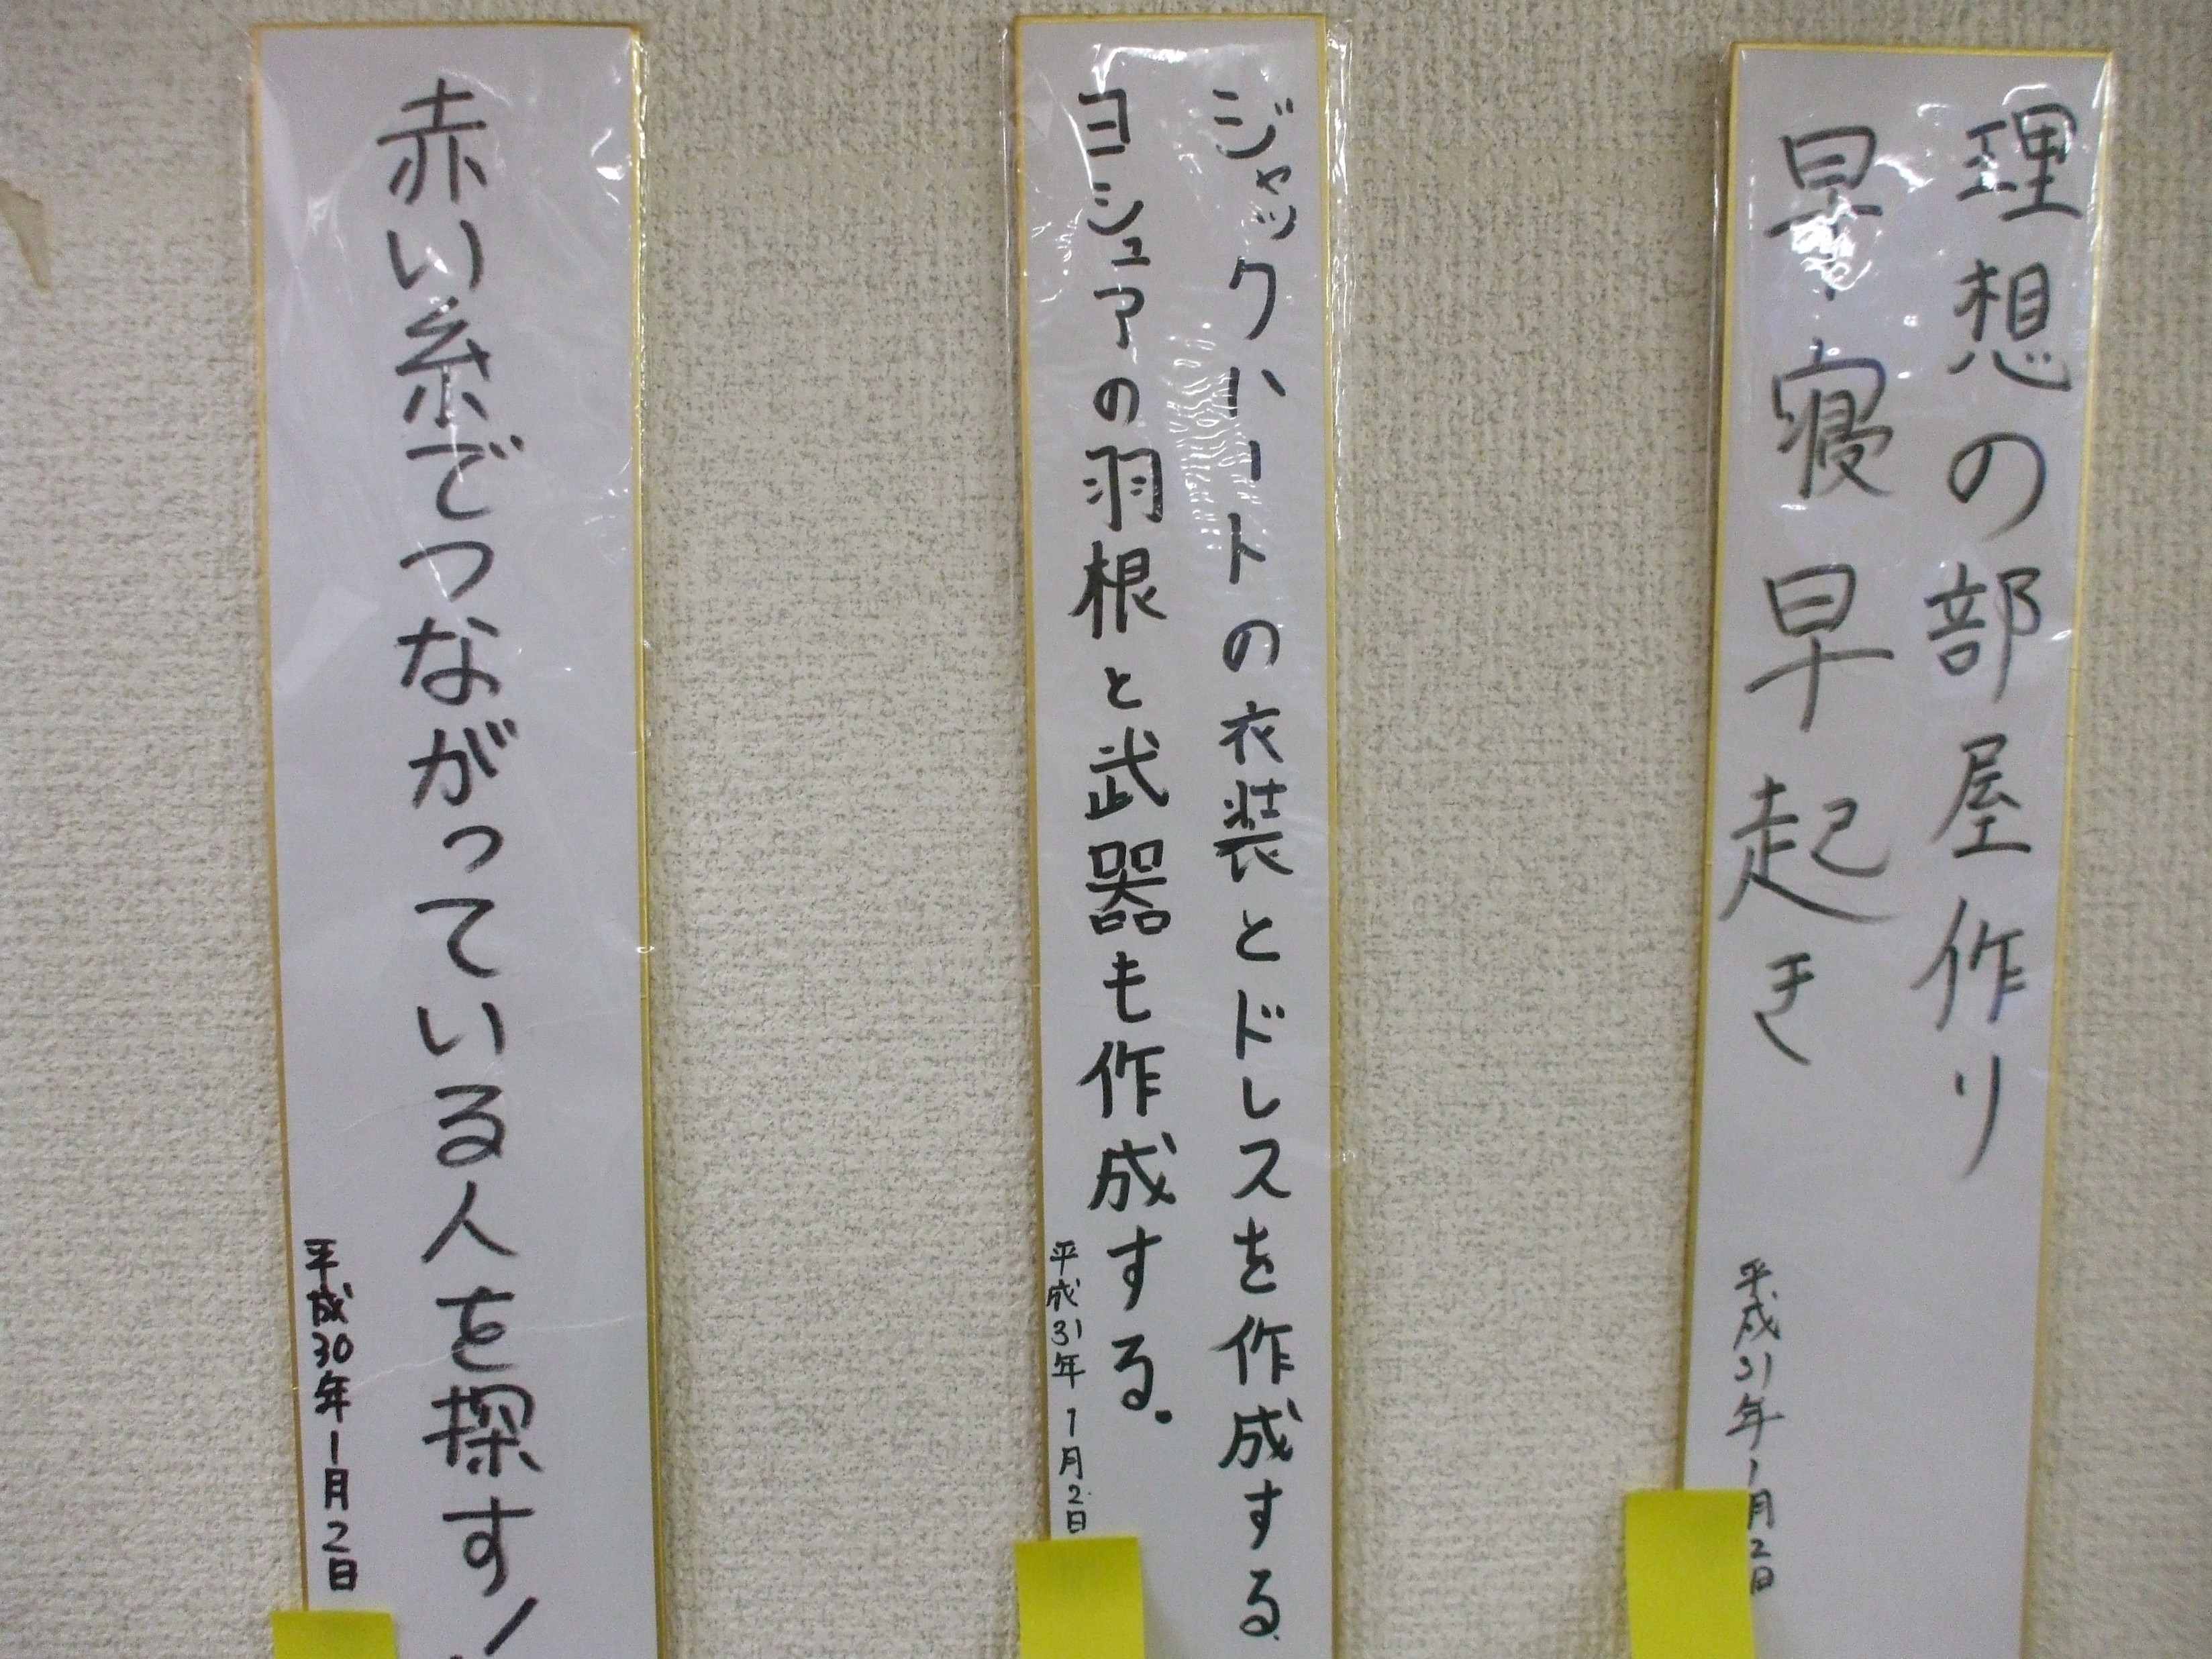 理想の部屋作り
早寝早起き
平成31年1月2日
ジャックハートの衣装とドレスを作成する。
ヨシュアの羽根と武器も作成する。
平成31年1月2日
赤い糸でつながっている人を探す!
平成30年1月2日